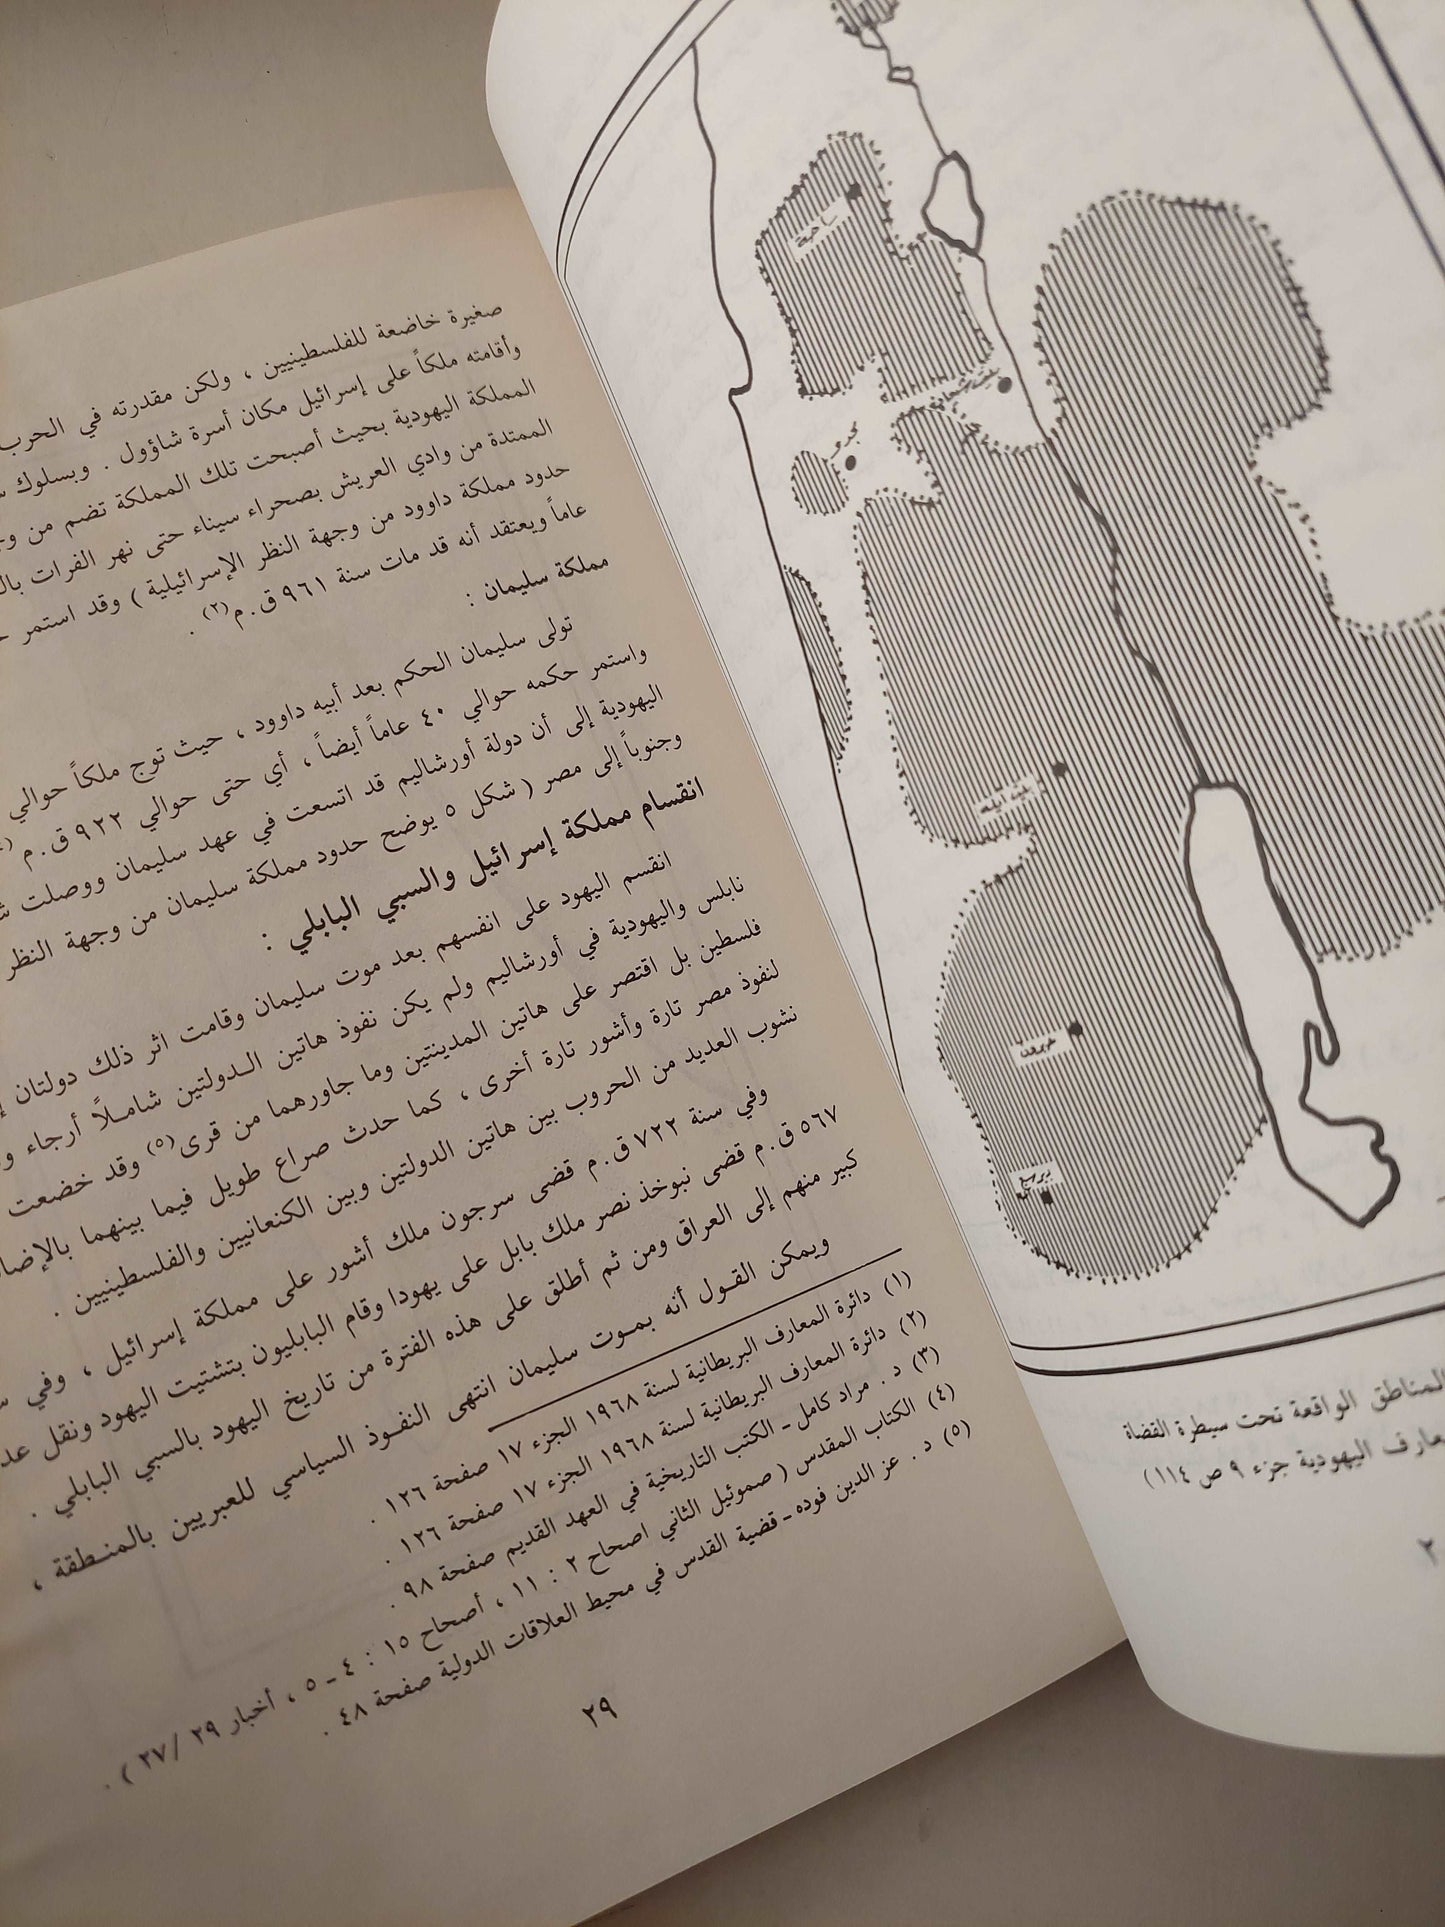 صغيرة خاضعة للفلسطينيين ، ولكن مقدرته في الحرب
وأقامته ملكاً على إسرائيل مكان أسرة شاؤول . وبسلوك
المملكة اليهودية بحيث أصبحت تلك المملكة تضم من
الممتدة من وادي العريش بصحراء سيناء حتى نهر الفرات
حدود مملكة داوود من وجهة النظر الإسرائيلية ) وقد استمر
عاماً ويعتقد أنه قد مات سنة ٩٦١ ق.م(٢) .
مملكة سليمان :
تولى سليمان الحكم بعد أبيه داوود ، حيث توج ملكاً حوالي
واستمر حكمه حوالي ٤٠ عاماً أيضاً ، أي حتى حوالي ٩٢٢ ق.م
اليهودية إلى أن دولة أورشاليم قد اتسعت في عهد سليمان ووصلت
وجنوباً إلى مصر ( شكل ٥ يوضح حدود مملكة سليمان من وجهة النظر
انقسام مملكة إسرائيل والسبي البابلي :
انقسم اليهود على انفسهم بعد موت سليمان وقامت اثر ذلك دولتان
نابلس واليهودية في أورشاليم ولم يكن نفوذ هاتين الدولتين شاملاً أرجاء
فلسطين بل اقتصر على هاتين المدينتين وما جاورهما من قرى(٥) وقد خضعت
لنفوذ مصر تارة وأشور تارة أخرى ، كما حدث صراع طويل فيما بينهما
نشوب العديد من الحروب بين هاتين الدولتين وبين الكنعانيين والفلسطينيين .
وفي سنة ٧٢٢ ق.م قضى سرجون ملك أشور على مملكة إسرائيل ، وفي
٥٦٧ ق.م قضى نبوخذ نصر ملك بابل على يهودا وقام البابليون بتشتيت اليهود ونقل
كبير منهم إلى العراق ومن ثم أطلق على هذه الفترة من تاريخ اليهود بالسبي البابلي .
ويمكن القول أنه بموت سليمان انتهى النفوذ السياسي للعبريين بالمنطقة ،
(١) دائرة المعارف البريطانية لسنة ١٩٦٨ الجزء ١٧ صفحة ١٢٦ .
(٢) دائرة المعارف البريطانية لسنة ١٩٦٨ الجزء ١٧ صفحة ١٢٦ .
(٣) د . مراد كامل - الكتب التاريخية في العهد القديم صفحة ٩٨ .
(٤) الكتاب المقدس ( صموئيل الثاني اصحاح ٢ : ١١ ، أصحاح ١٥ : ٤ - ٥ ، أخبار ٢٩ / ٢٧ ) .
(٥) د . عز الدين فوده - قضية القدس في محيط العلاقات الدولية صفحة ٤٨ .
٢٩
حبرون
بير سبع
المناطق الواقعة تحت سيطرة القضاة
اليهودية جزء ٩ ص ١١٤)